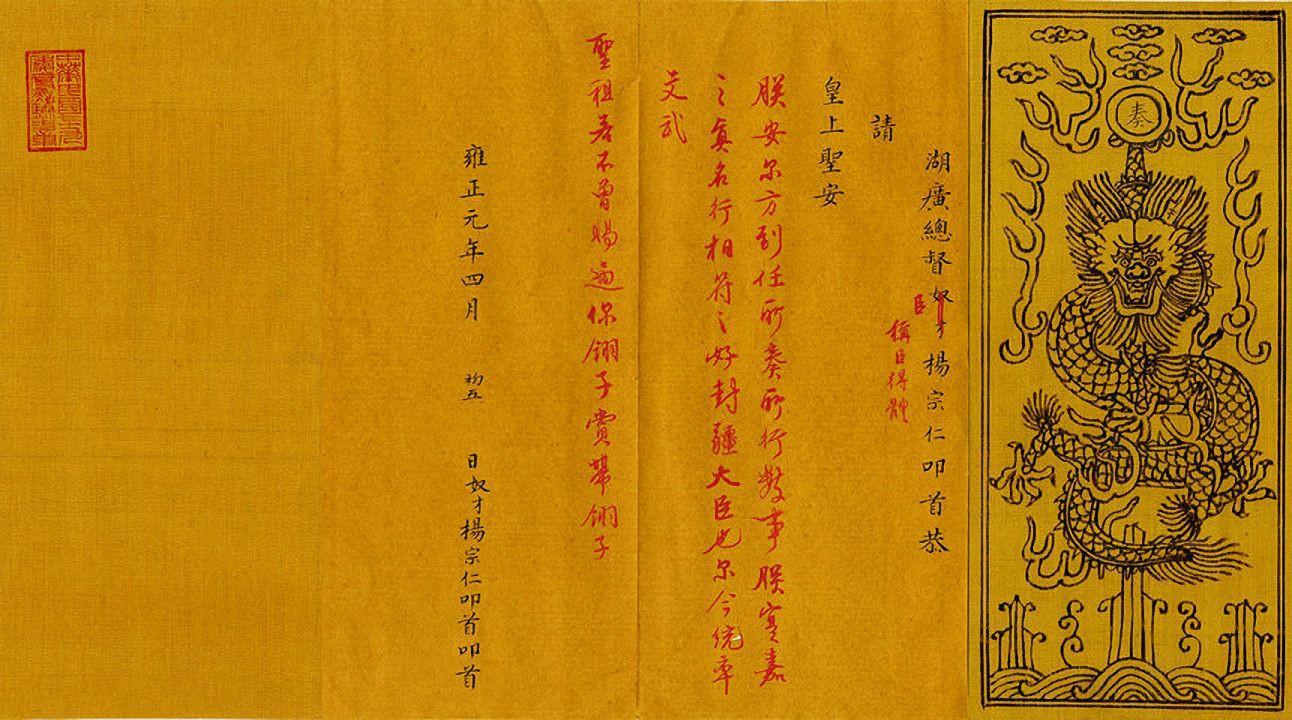 奏
湖廣總督奴才楊宗仁叩首恭
臣
稱臣得體
請
皇上聖安
朕安尔方到任所奏所行數事朕寔嘉
之真名行相符之好封疆大臣也尔今統率
文武
聖祖若不曾賜過你翎子賞帶翎子
雍正元年四月初五日奴才楊宗仁叩首叩首
中華民國